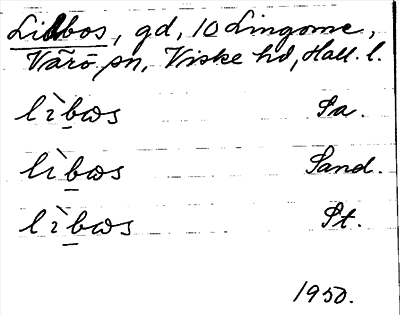 Lidbos, gd, 10 Lingome,
Värö sn, Viske hd, Hall. l.
lìbꞷs Sa.
lìbꞷs Sand.
lìbꞷs St.
1950.